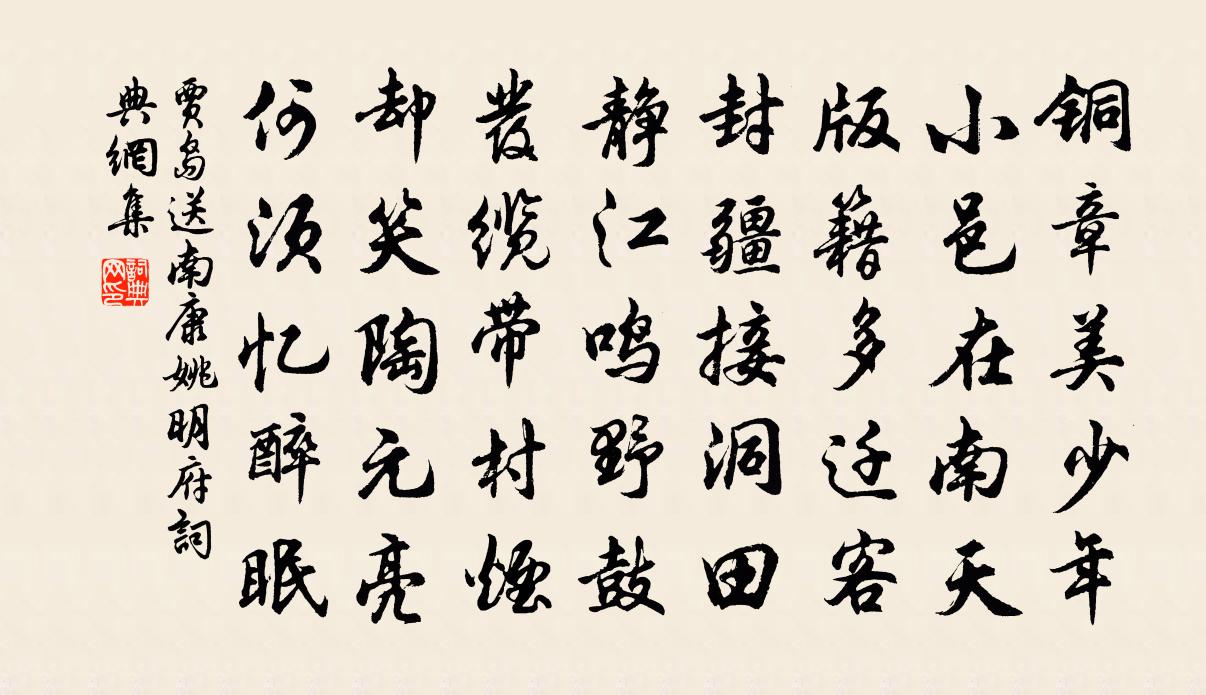 铜章美少年
小邑在南天
版籍多迁客
封疆接洞田
静江鸣野鼓
发缆带村煙
却笑陶元亮
何须忆醉眠
贾岛送南康姚明府詞
典網集
詞典网印